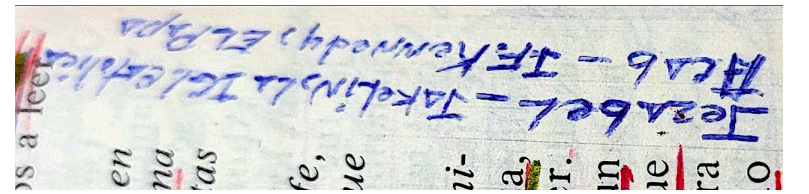 Jezabel - JakeLin, La IGLcatolica
Acab - J.F. Kennedy, EL Papa
os a leer
en
na
tas
fe,
ue
ni-
a,
er.
un
ue
ra
o